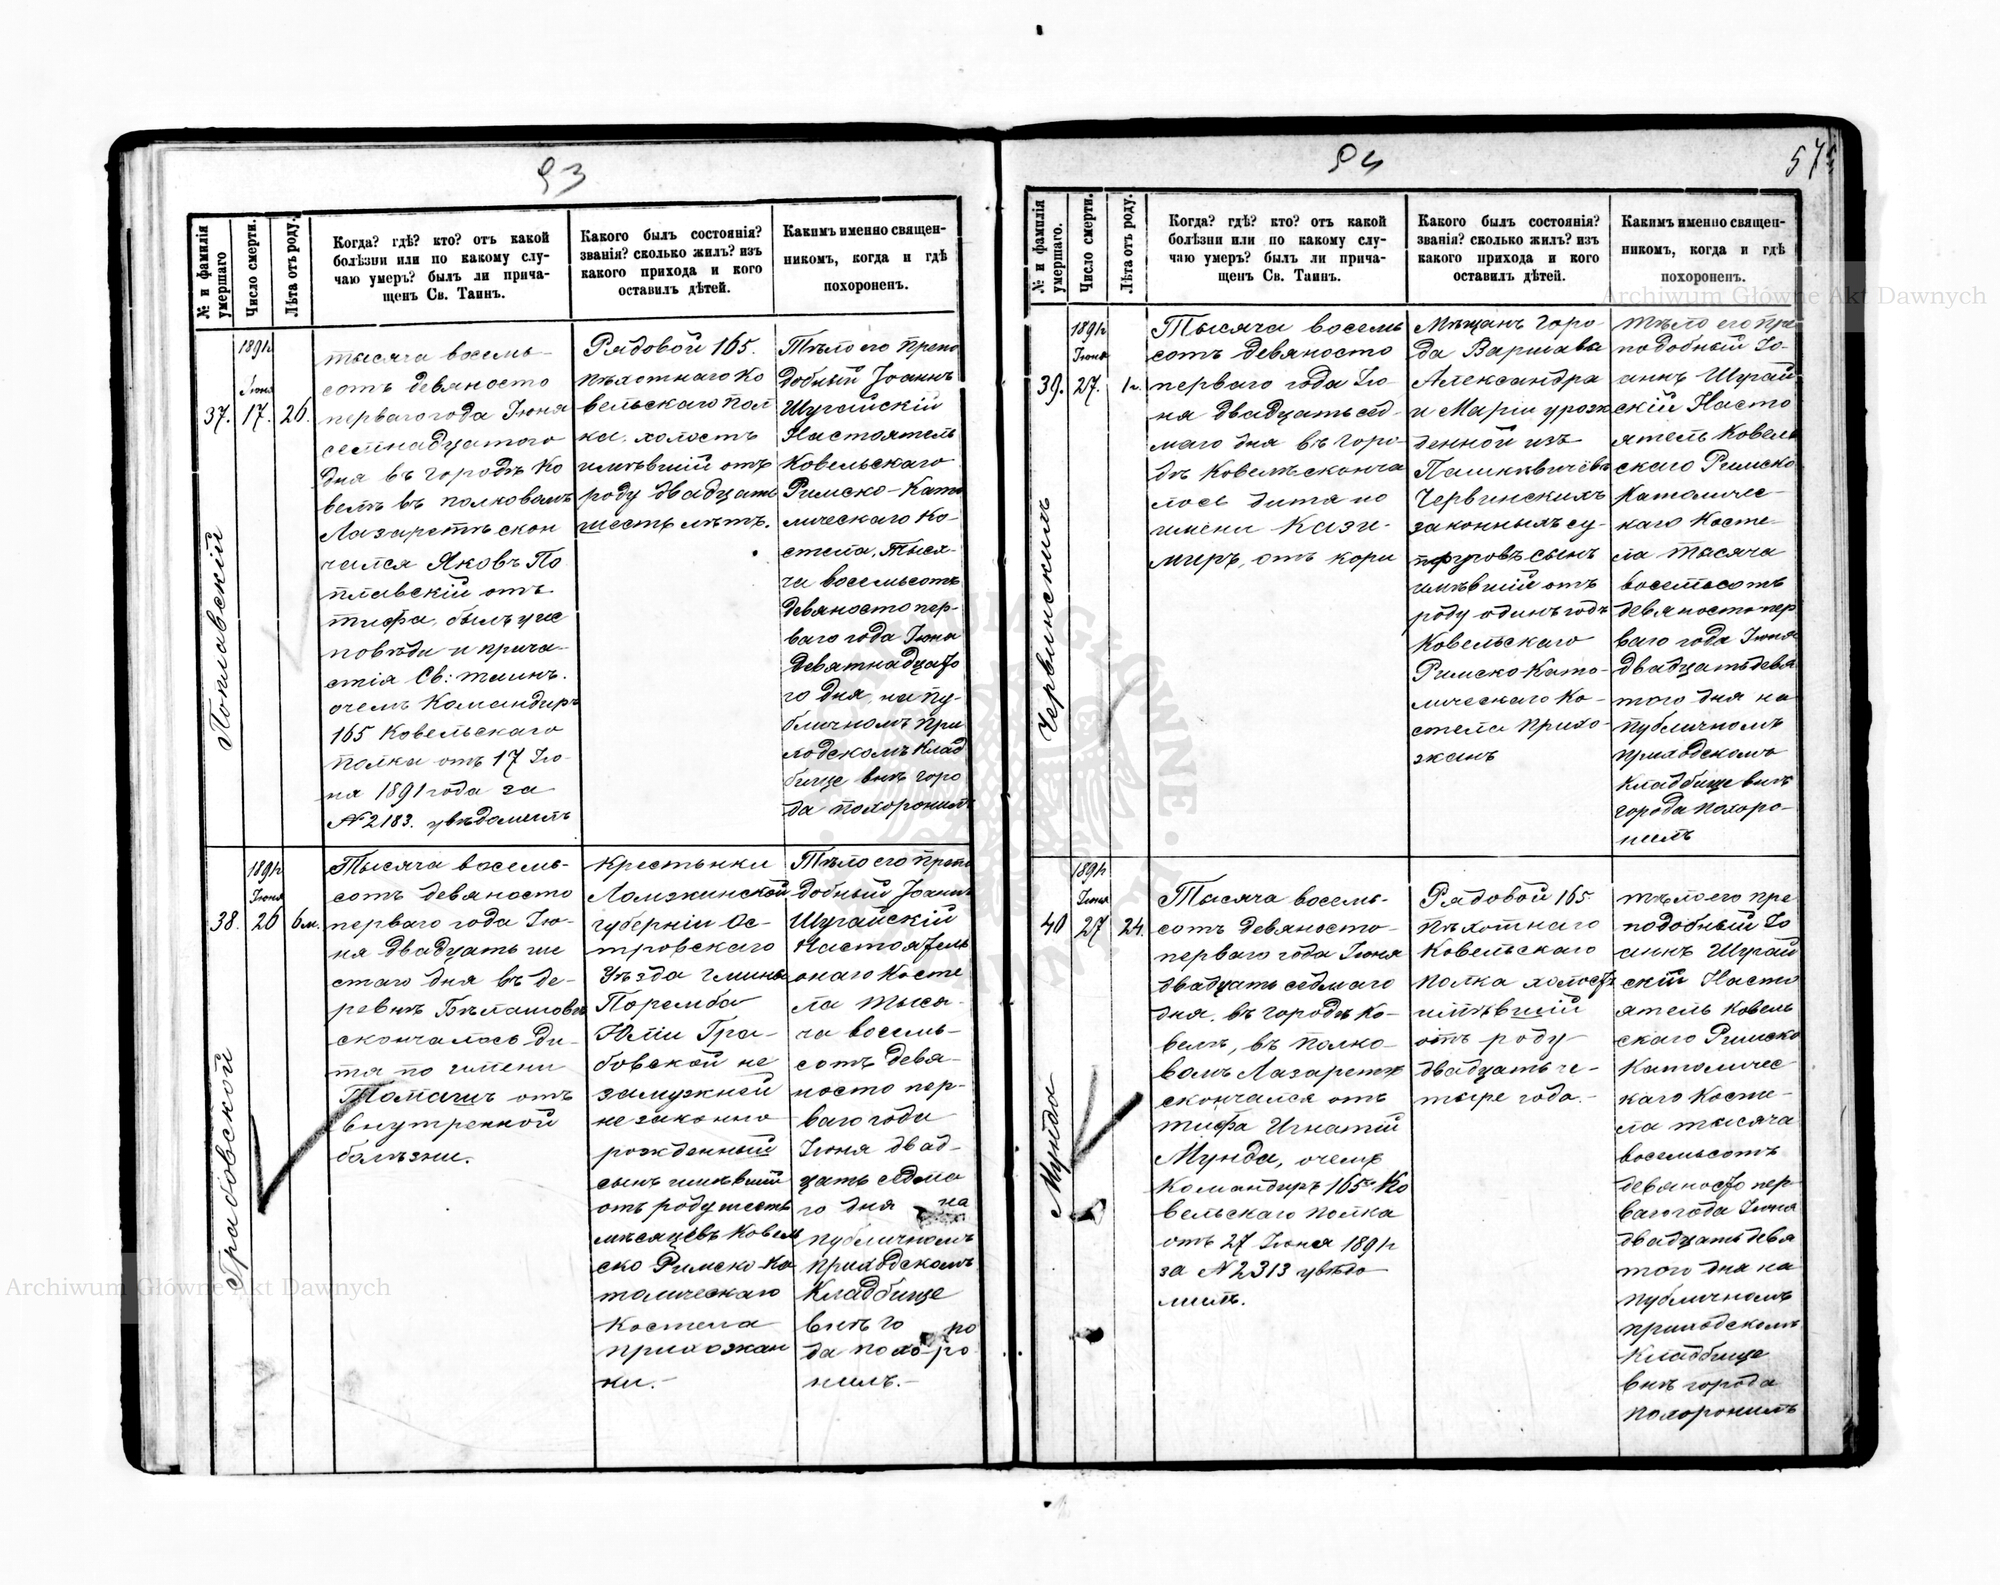 93
№ и фамилія умершаго
Число смерти.
Лѣта отъ роду.
Когда? гдѣ? кто? отъ какой
болѣзни или по какому слу-
чаю умеръ? былъ ли прича-
щенъ Св. Таинъ.
Какого былъ состоянія?
званія? сколько жилъ? изъ
какого прихода и кого
оставилъ дѣтей.
Какимъ именно священ-
никомъ, когда и гдѣ
похороненъ.
37.
Поплавскій
1891г
Іюня
17.
26.
тысяча восемь-
сотъ девяносто
перваго года Іюня
семнадцатого
дня въ городѣ Ко
велѣ въ полковомъ
Лазаретѣ скон
чался Яковъ По
плавскій отъ
тифа, былъ у ис
повѣди и прича-
стія Св: таинъ.
очемъ Командиръ
165 Ковельскаго
полка отъ 17 Ію-
ня 1891 года за
№ 2183. увѣдомилъ
Рядовой 165.
пѣхотнаго Ко
вельскаго пол
ка, холостъ
имѣвшій отъ
роду двадцать
шесть лѣтъ.
Тѣло его препо
добный Іоаннъ
Шугайскій
Настоятель
Ковельскаго
Римско-Като
лическаго Ко-
стела, тыся-
ча восемьсотъ
девяносто пер-
ваго года Іюня
девятнадцато
го дня, на пу-
бличномъ при
ходскомъ Клад
бище внѣ горо
да похоронилъ
38.
Грабовской
1891г
Іюня
26
6м.
Тысяча восемь-
сотъ девяносто
перваго года Ію-
ня двадцать ше
стаго дня въ де-
ревнѣ Бѣлашовѣ
скончалось ди-
тя по имени
Томашъ отъ
внутренной
болѣзни.
Крестьянки
Ломжинской
губерніи Ос-
тровскаго
Уѣзда гмины
Поремба
Юліи Гра-
бовской не
замужней
незаконно
рожденный
сынъ имѣвшій
отъ роду шесть
мѣсяцевъ Ковель
ско Римско-Ка
толическаго
Костела
прихожан
ки.-
Тѣло его препо
добный Іоаннъ
Шугайскій
Настоятель
онаго Косте
ла тыся-
ча восемь-
сотъ девя-
носто пер-
ваго года
Іюня двад-
цать седма
го дня на
публичномъ
приходскомъ
Кладбище
внѣ го ро
да похо-ро
нилъ.-
94
575
№ и фамилія умершаго.
Число смерти.
Лѣта отъ роду.
Когда? гдѣ? кто? отъ какой
болѣзни или по какому слу-
чаю умеръ? былъ ли прича-
щенъ Св. Таинъ.
Какого былъ состоянія?
званія? сколько жилъ? изъ
какого прихода и кого
оставилъ дѣтей.
Какимъ именно священ-
никомъ, когда и гдѣ
похороненъ.
39.
Червинскимъ
1891г
Іюня
27.
1г.
Тысяча восемь
сотъ девяносто
перваго года Ію-
ня двадцать сед-
маго дня въ горо-
дѣ Ковелѣ сконча
лось дитя по
имени Кази-
миръ, отъ кори
Мѣщанъ горо-
да Варшавы
Александра
и Маріи урож
денной изъ
Пашкевичевъ
Червинскихъ
законныхъ су-
пруговъ сынъ
имѣвшій отъ
роду одинъ годъ
Ковельскаго
Римско Като-
лическаго Ко-
стела прихо-
жанъ
тѣло его пре
подобный Іо-
аннъ Шугай
скій Насто
ятель Ковель
скаго Римско
Католичес-
каго Косте-
ла тысяча
восемьсотъ
девяносто пер
ваго года Іюня
двадцать девя
того дня на
публичномъ
приходскомъ
кладбище внѣ
города похоро-
нилъ
40
Мунда
1891г
Іюня
27
24.
Тысяча восемь-
сотъ девяносто-
перваго года Іюня
двадцать седмаго
дня, въ городѣ Ко-
велѣ, въ полко-
вомъ Лазаретѣ
скончался отъ
тифа Игнатій
Мунда, очемъ
Командиръ 165го Ко
вельскаго полка
отъ 27 Іюня 1891г
за № 2313 увѣдо
милъ.
Рядовой 165-
пѣхотнаго
Ковельскаго
полка холостъ
имѣвшій
отъ роду
двадцать че-
тыре года.-
тѣло его пре
подобный Іо
аннъ Шугай
скій Насто
ятель Ковель
скаго Римско
Католичес
каго Косте-
ла тысяча
восемьсотъ
девяносто пер
ваго года Іюня
двадцать девя
того дня на
публичномъ
приходскомъ
кладбище
внѣ города
похоронилъ
Archiwum Główne Akt Dawnych
Archiwum Główne Akt Dawnych